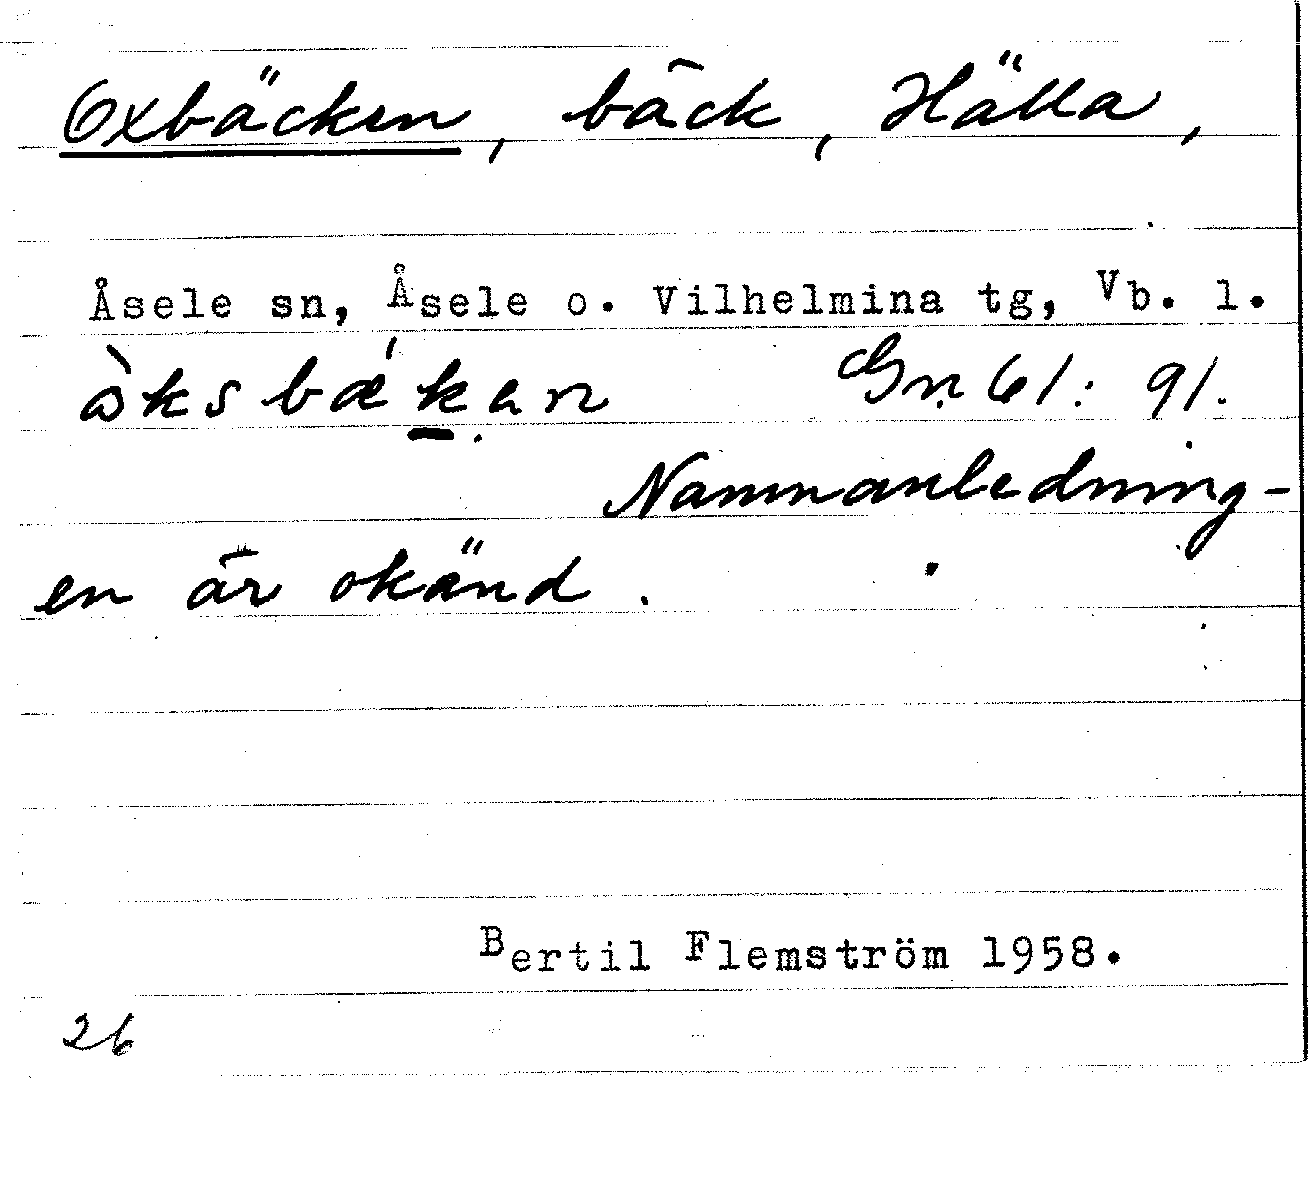 Oxbäcken, bäck, Hälla,
Åsele sn, Åsele o. Vilhelmina tg, Vb. l.
òksbǽkan Gn. 61: 91.
Namnanledning-
en är okänd.
Bertil Flemström 1958.
26